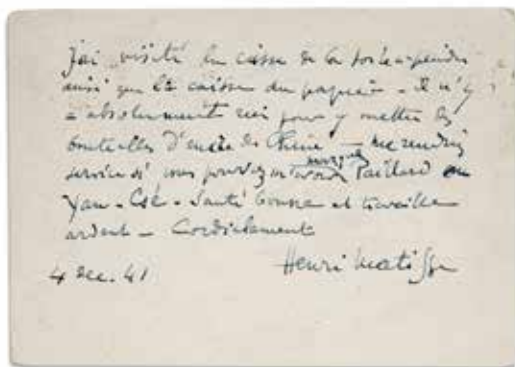 J'ai visité la caisse de la soie à peindre
ainsi que la caisse du papier - il n'y
a absolument rien pour y mettre les
bouteilles d'encre de Chine - me rendrez
service si vous pouvez m'avoir Paillard ou
Yan-Tsé - Santé bonne et travaille
ardent - Cordialement
4 Dec. 41 Henri Matisse